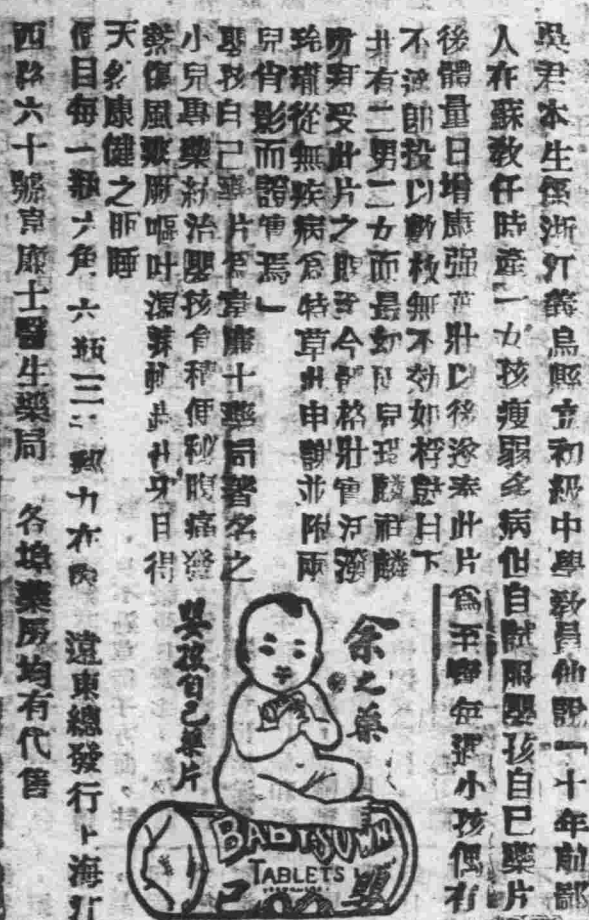 吳君本生係浙江義烏縣立初級中學敎員他說一十年前鄙
人在蘇敎任時產一女孩瘦弱多病但自試服嬰孩自己藥片
後體量日增康强茁壯以後遂奉此片爲至寶每遇小孩偶有
不適即投以數枚無不効如桴鼓目下
共有二男二女而最幼
受此片之賜至今體格壯實活潑
玲瓏從無疾病爲特草此申謝並附兩
兒肖影而證實焉」
嬰孩自己藥片爲韋廉士藥局著名之
小兒專藥統治嬰孩食積便秘腹痛發
熱傷風嘔吐得
天然康健之睡
價目每一瓶六角六瓶三元郵力在內 遠東總發行上海江
西路六十號韋廉士醫生藥局 各埠藥房均有代售
余之藥
嬰孩自己藥片
BABY'S OWN
TABLETS
嬰
己